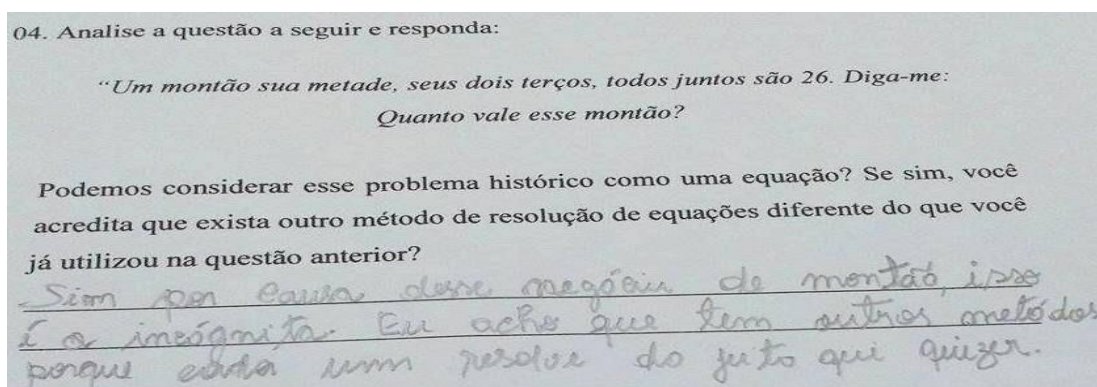 04. Analise a questão a seguir e responda:
“Um montão sua metade, seus dois terços, todos juntos são 26. Diga-me:
Quanto vale esse montão?
Podemos considerar esse problema histórico como uma equação? Se sim, você
acredita que exista outro método de resolução de equações diferente do que você
já utilizou na questão anterior?
Sim por causa desse negócio de montão, isso
é a incógnita. Eu acho que tem outros metódos
porque cada um resolve do jeito qui quizer.